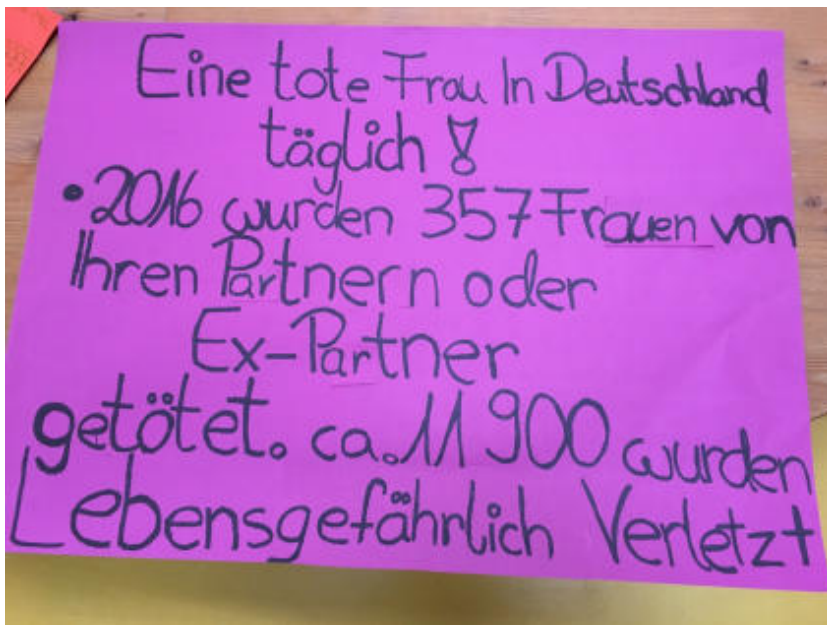 Eine tote Frau In Deutschland
täglich!
• 2016 wurden 357 Frauen von
Ihren Partnern oder
Ex-Partner
getötet. ca. 11 900 wurden
Lebensgefährlich Verletzt